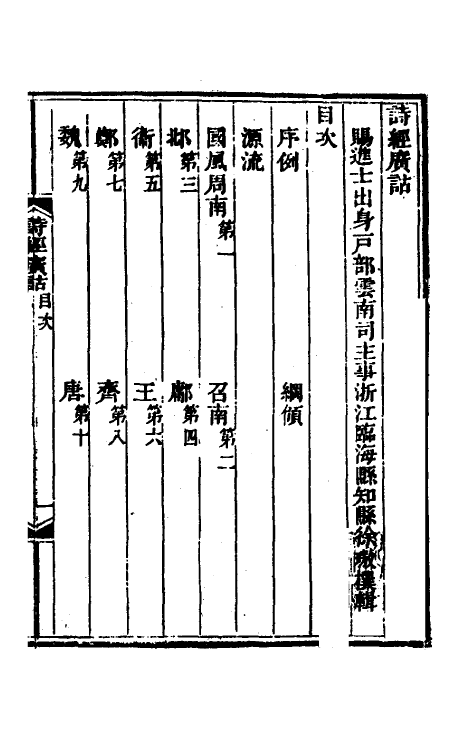 詩經廣詁
賜進士出身戶部雲南司主事浙江臨海縣知縣徐璈撰輯
目次
序例 綱領
源流
國風周南第一 召南第二
邶第三 鄘第四
衛第五 王第六
鄭第七 齊第八
魏第九 唐第十
詩經廣詁 目次